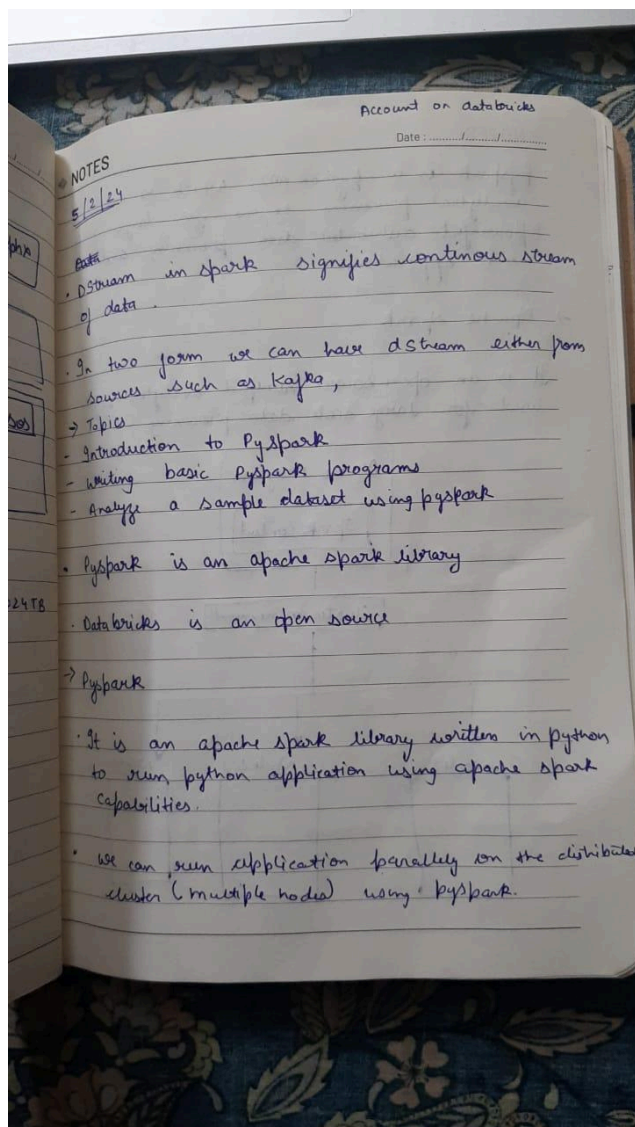 Account on databricks
Date : ........../........../..............
NOTES
5/2/24
Dstream in spark signifies continous stream
of data.
. In two form we can have dstream either from
sources such as Kafka,
→ Topics
- Introduction to Pyspark
- writing basic Pyspark programs
- Analyze a sample dataset using pyspark
. Pyspark is an apache spark library
. Databricks is an open source
→ Pyspark
. It is an apache spark library written in python
to run python application using apache spark
capabilities.
. we can run application parallely on the distribute
cluster (multiple nodes) using pyspark.
phx
sos
024TB